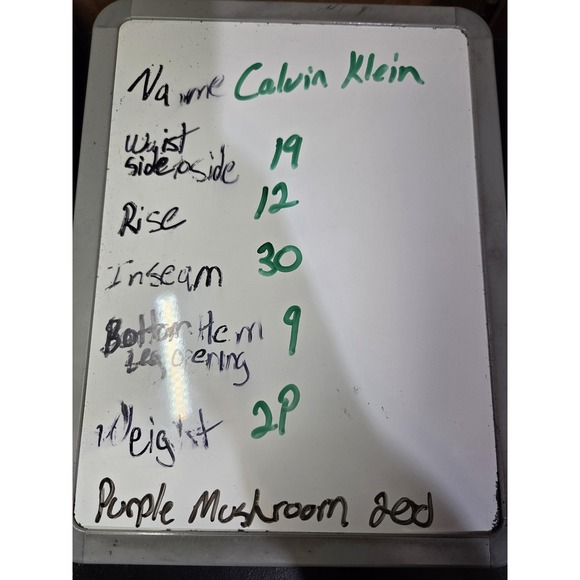 Name Calvin Klein
Waist 19
side to side
Rise 12
Inseam 30
Bottom Hem 9
Leg opening
Weight 2P
Purple Mushroom